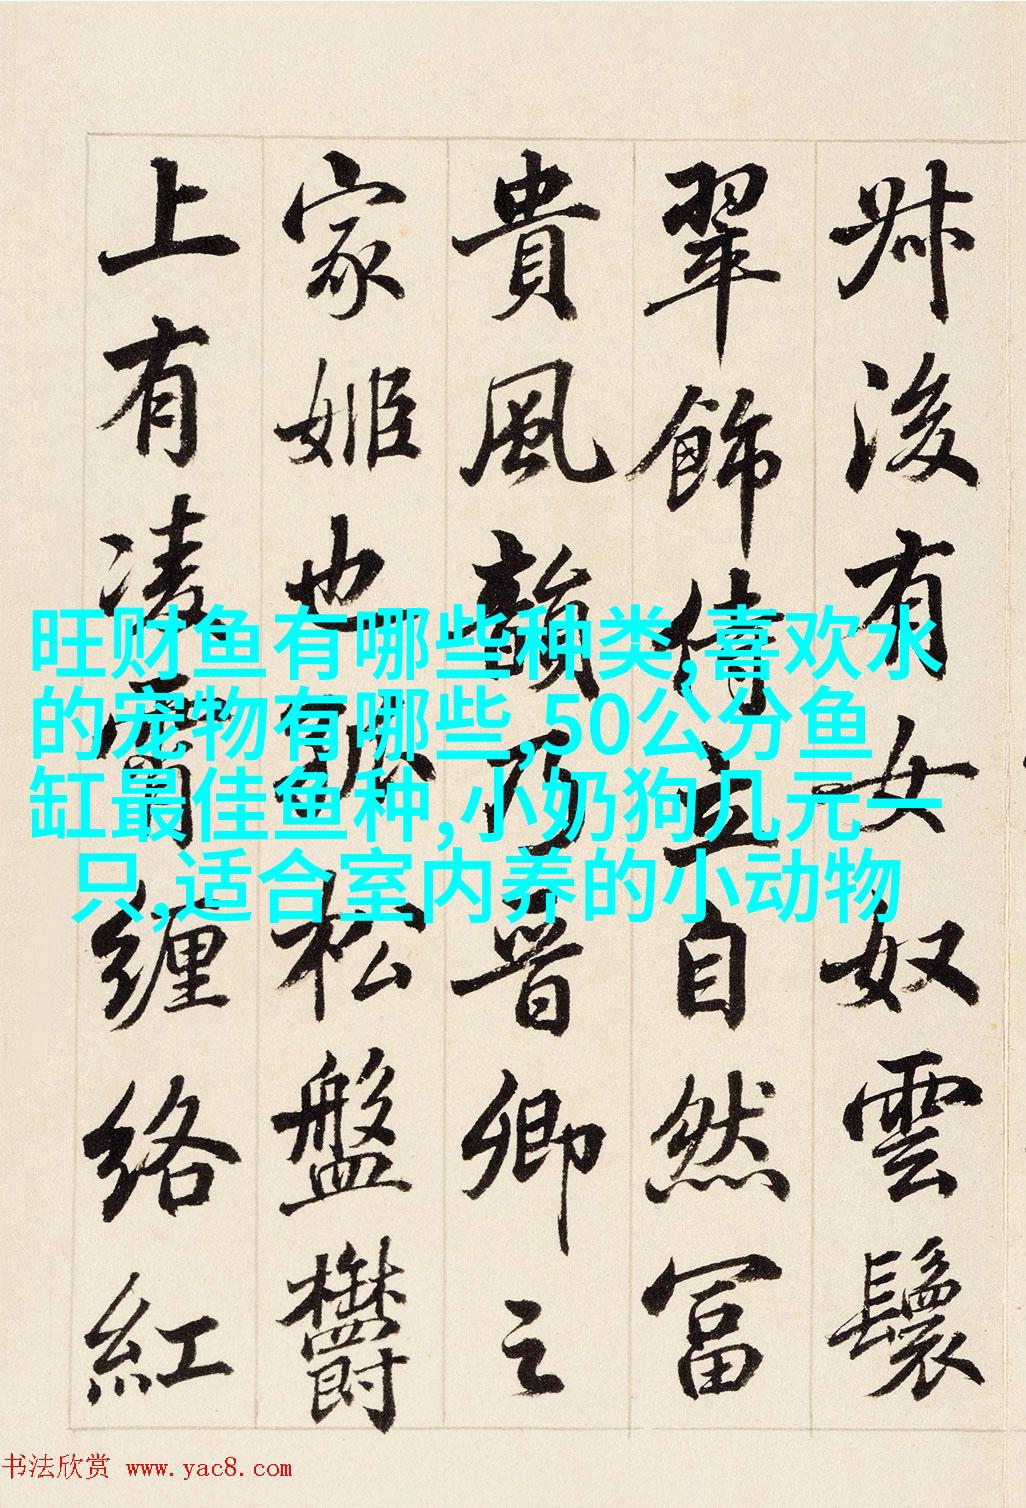 叔後有女奴雲鬟
翠飾侍立自然富
貴風韻乃晉卿之
家姬也孤松盤欝
上有凌霄纏絡紅
旺财鱼有哪些种类,喜欢水
的宠物有哪些,50公分鱼
缸最佳鱼种,小奶狗几元一
只,适合室内养的小动物
书法欣赏 www.yac8.com